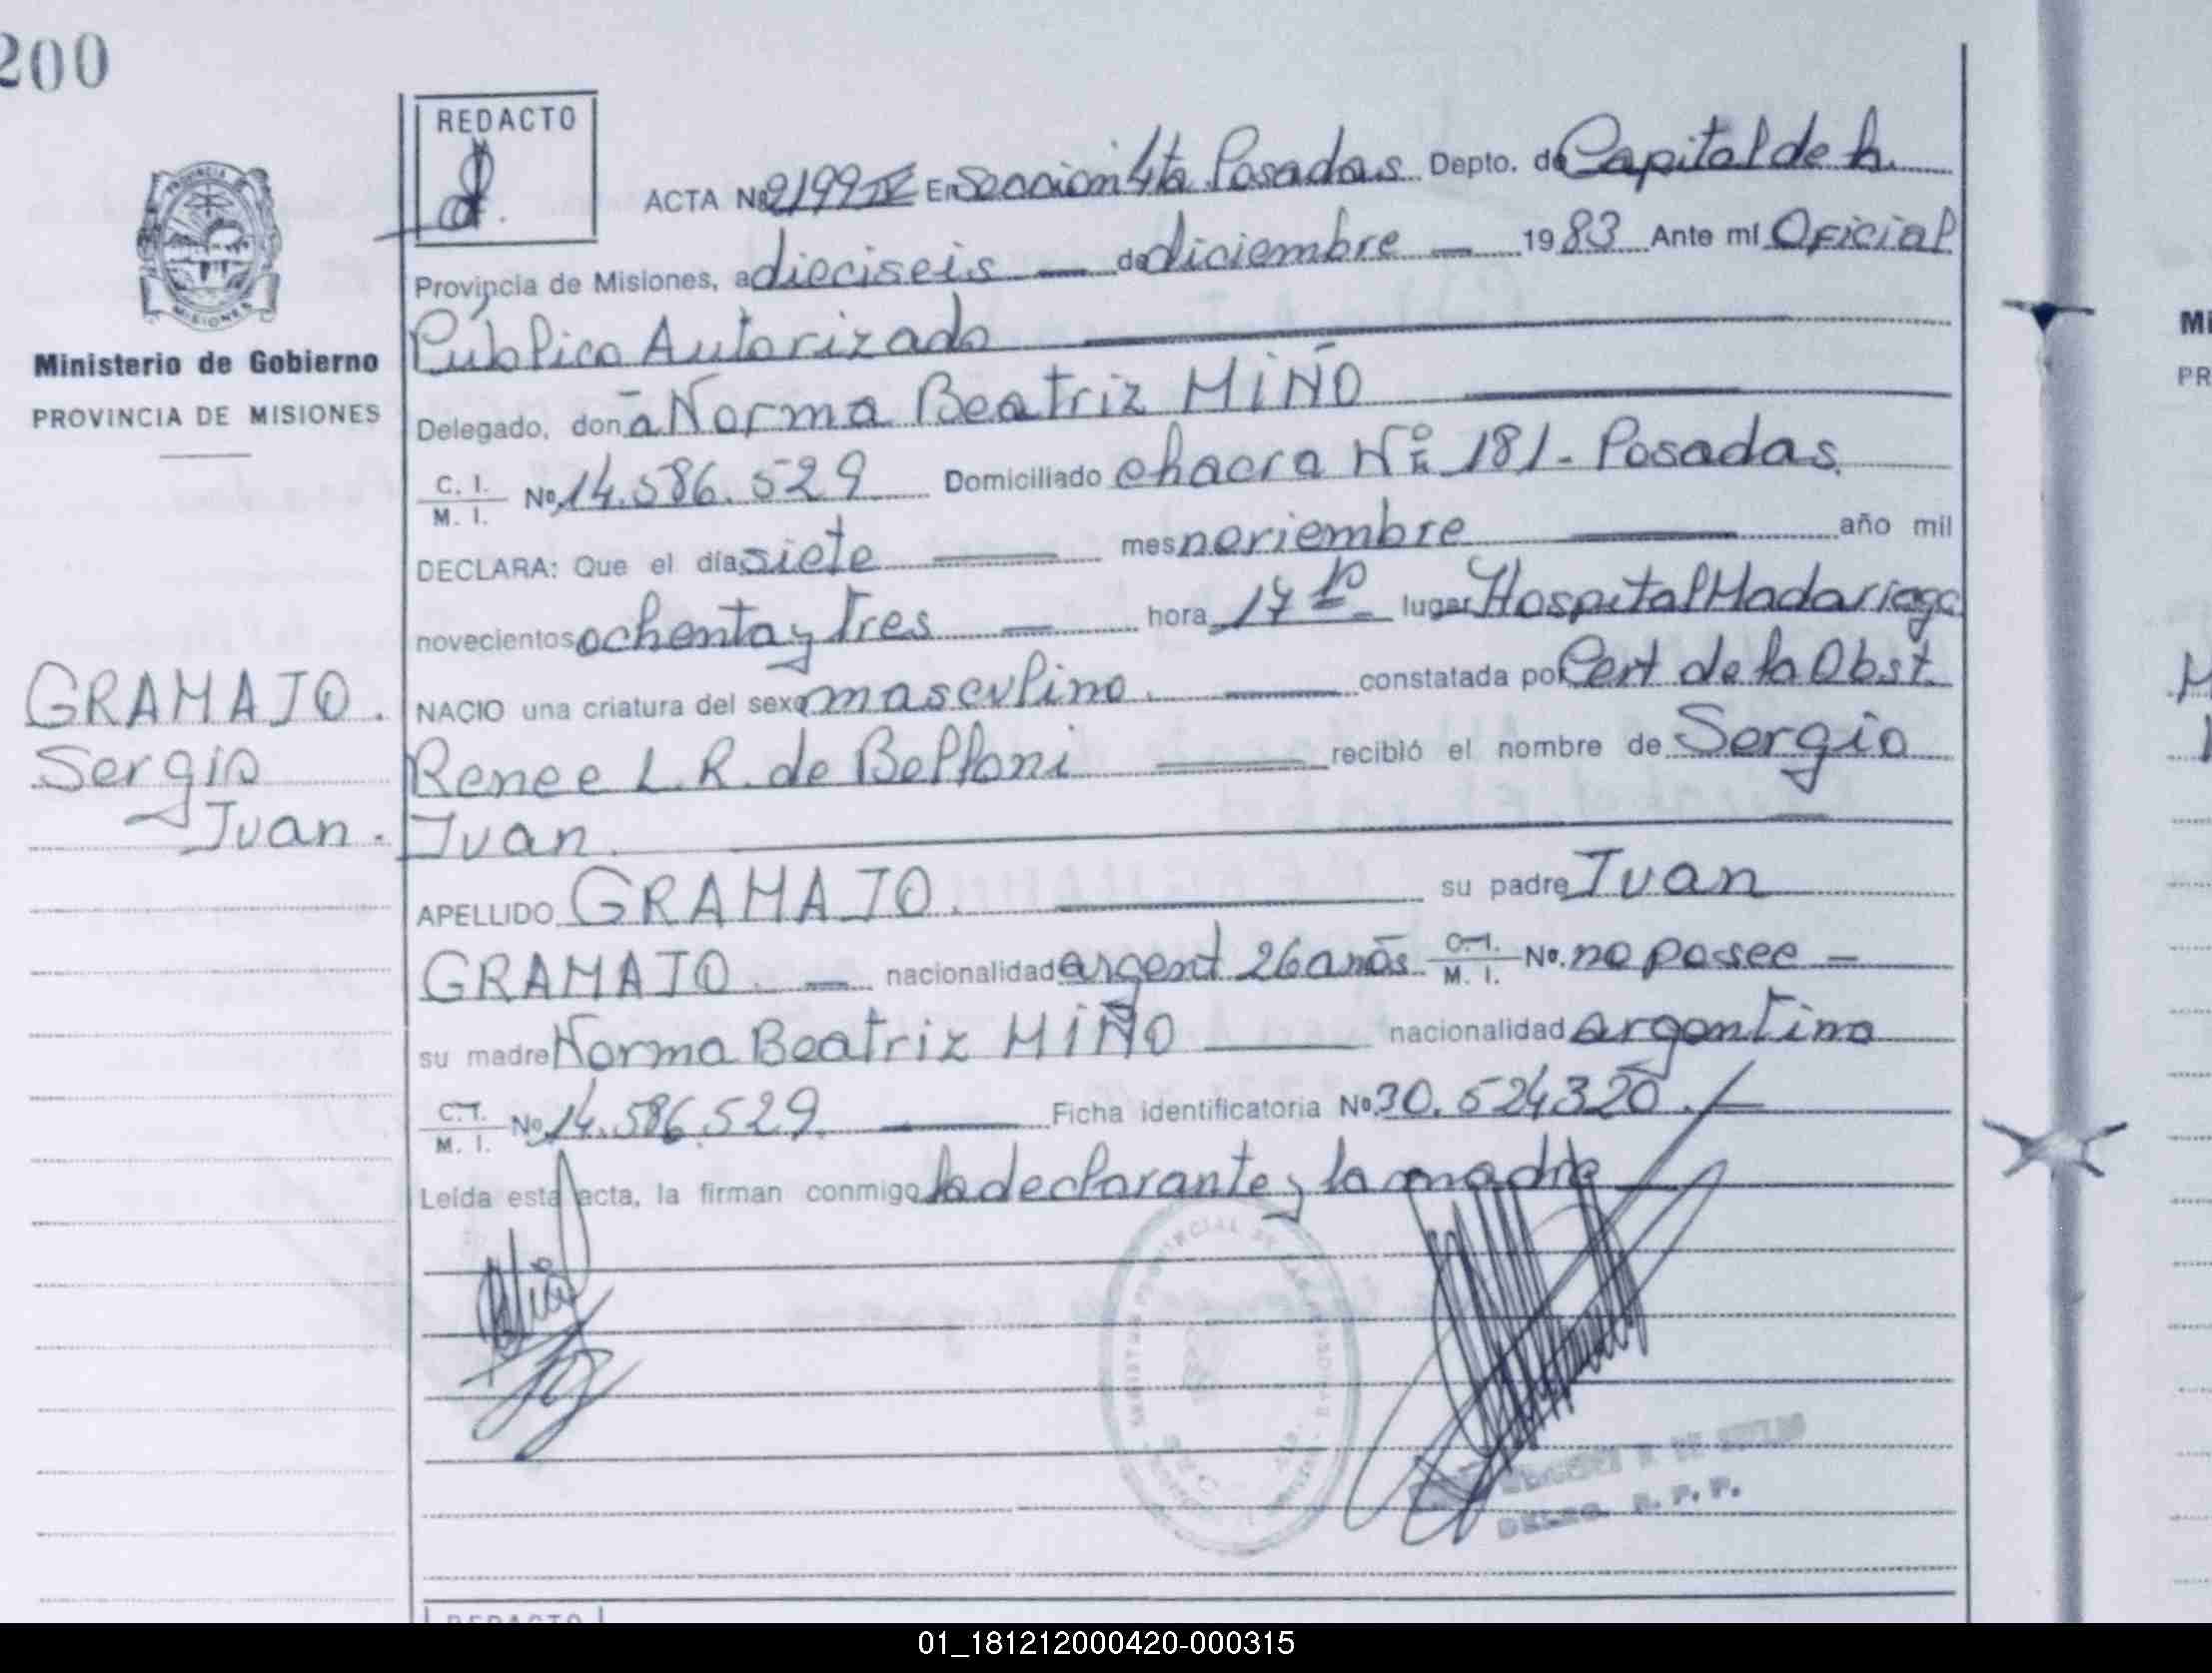 200
REDACTO
ACTA Nº 2199 IV En Sección 4ta Posadas Depto. de Capital de la
Provincia de Misiones, a dieciseis — de diciembre — 1983 Ante mí Oficial
Público Autorizado
Ministerio de Gobierno
PROVINCIA DE MISIONES
Delegado, don ã Norma Beatriz MIÑO
C. I. M. I. Nº 14.586.529 Domiciliado chacra Nº 181 - Posadas.
DECLARA: Que el día siete mes noviembre año mil
novecientos ochenta y tres — hora 17 lugar Hospital Madariaga
NACIO una criatura del sexo masculino. constatada por Cert de la Obst.
Renee L. R. de Belloni recibió el nombre de Sergio
Juan.
GRAMAJO.
Sergio
Juan.
APELLIDO GRAMAJO. su padre Juan
GRAMAJO. — nacionalidad argent 26 años C. I. M. I. No. no posee —
su madre Norma Beatriz MIÑO nacionalidad argentina
C. I. M. I. Nº 14.586.529. Ficha identificatoria Nº 30.524320./—
Leída esta acta, la firman conmigo la declarante y la madre
DELEG. R. P. P.
REDACTO
Mi
PR
01_181212000420-000315